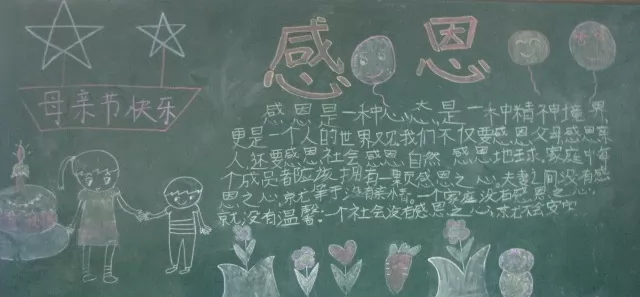 感恩
母亲节快乐
感恩是一种心态,是一种精神境界,
更是一个人的世界观我们不仅要感恩父母感恩亲
人,还要感恩社会,感恩自然,感恩地球,家庭中每
个成员都应该拥有一颗感恩之心。夫妻之间没有感
恩之心,就等于没有亲情。一个家庭没有感恩之心,
就没有温馨;一个社会没有感恩之心,就不会安宁